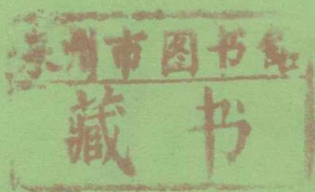 州市图书馆
藏书